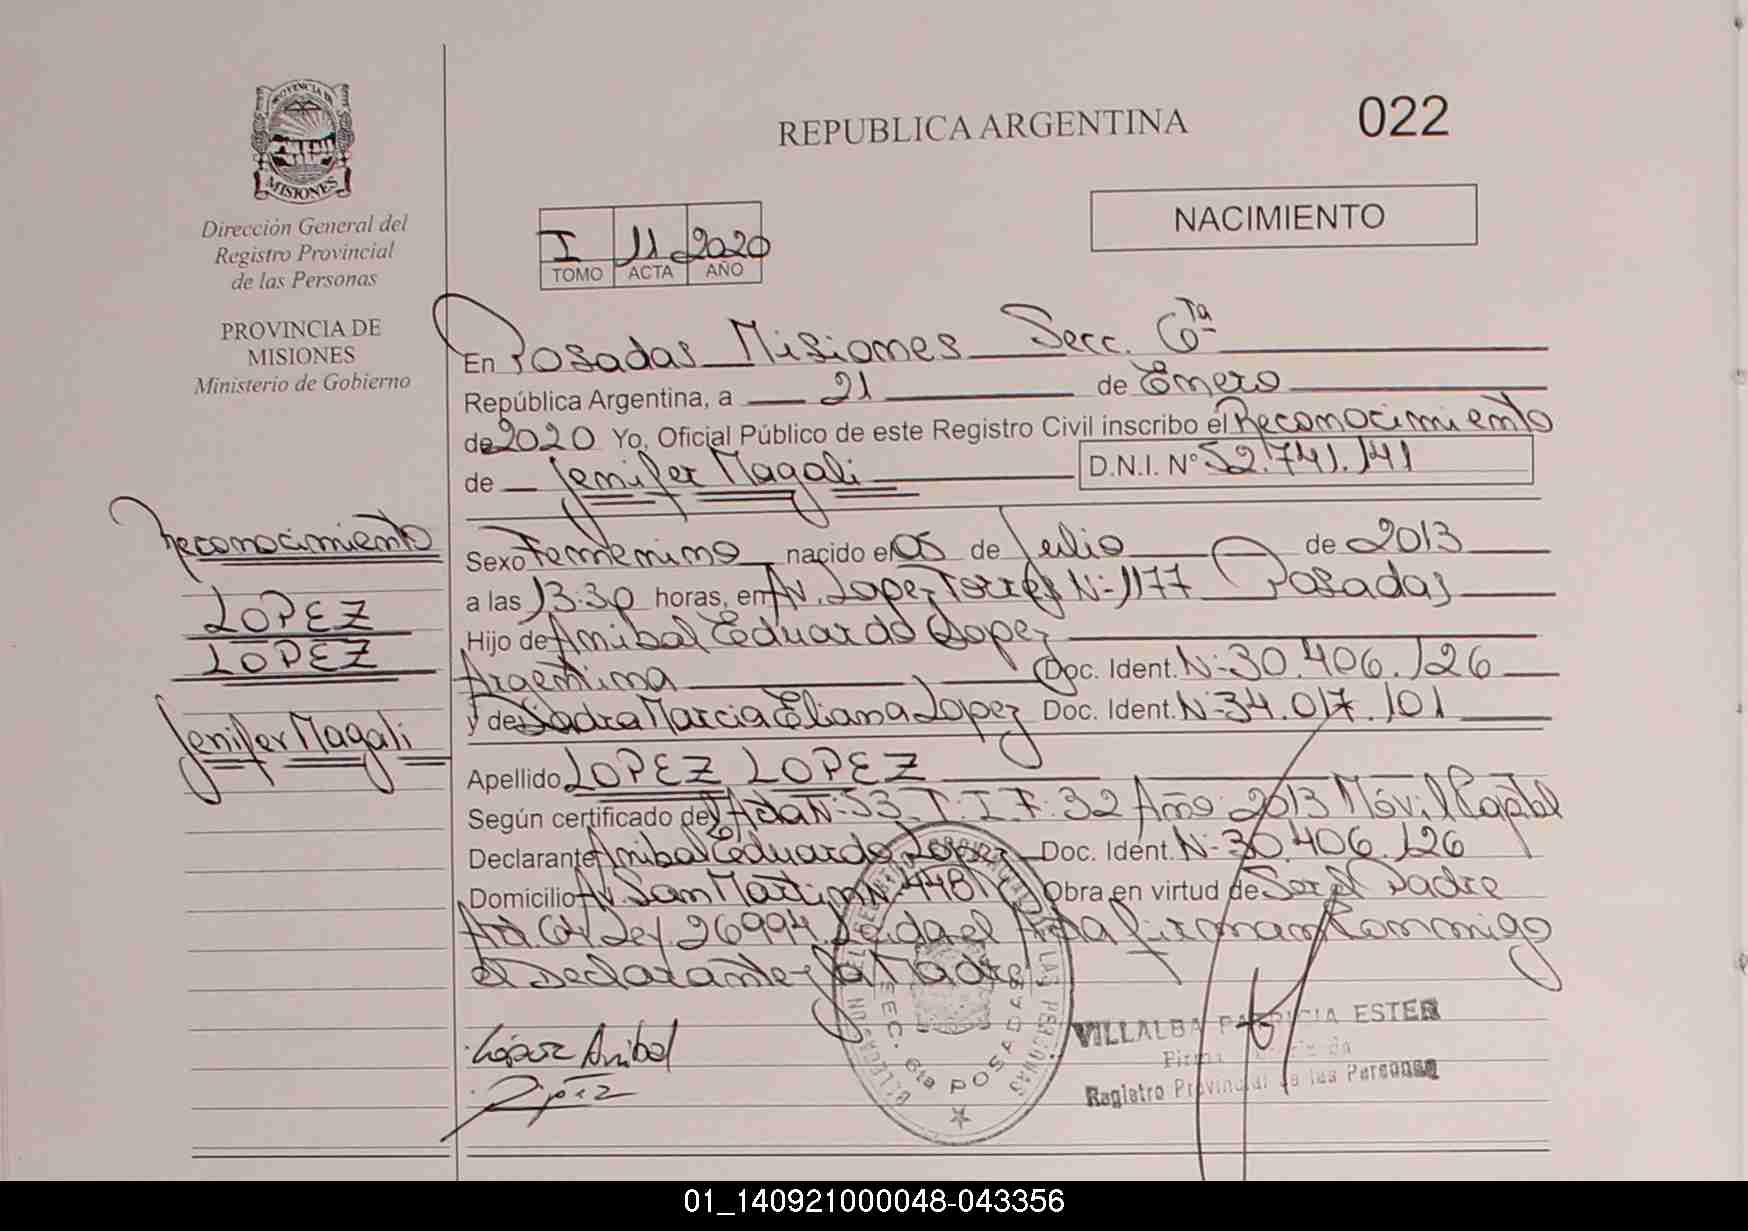 PROVINCIA DE
MISIONES
Dirección General del
Registro Provincial
de las Personas
PROVINCIA DE
MISIONES
Ministerio de Gobierno
REPUBLICA ARGENTINA
022
NACIMIENTO
I 11 2020
TOMO ACTA AÑO
En Posadas Misiones Secc. 6ta
República Argentina, a 21 de Enero
de 2020 Yo, Oficial Público de este Registro Civil inscribo el Reconocimiento
de Jenifer Magali D.N.I. N° 52.741.141
Sexo Femenino nacido el 05 de Julio de 2013
a las 13:30 horas, en Av. Lopez Torres N-1177 Posadas
Hijo de Anibal Eduardo Lopez
Argentina Doc. Ident. N-30.406.126
y de Marcia Eliana Lopez Doc. Ident. N-34.017.101
Apellido LOPEZ LOPEZ
Según certificado de Acta N-53.T:I.F:32 Año: 2013 Móvil
Declarante Anibal Eduardo Lopez Doc. Ident. N-30.406.126
Domicilio Av. San Martin N-4481 Obra en virtud de Ser el Padre
Ley 26994 Leida el Acta firman conmigo
el Declarante y la Madre
Reconocimiento
LOPEZ
LOPEZ
Jenifer Magali
López Anibal
SEC. 6ta POSADAS
VILLALBA PATRICIA ESTER
Registro Provincial de las Personas
01_140921000048-043356